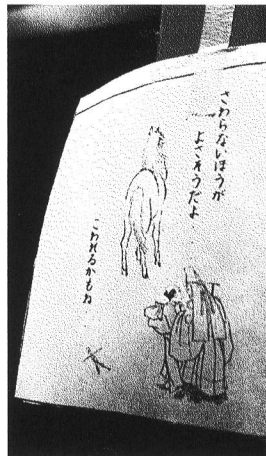 さわらないほうが
よさそうだよ
こわれるかもね